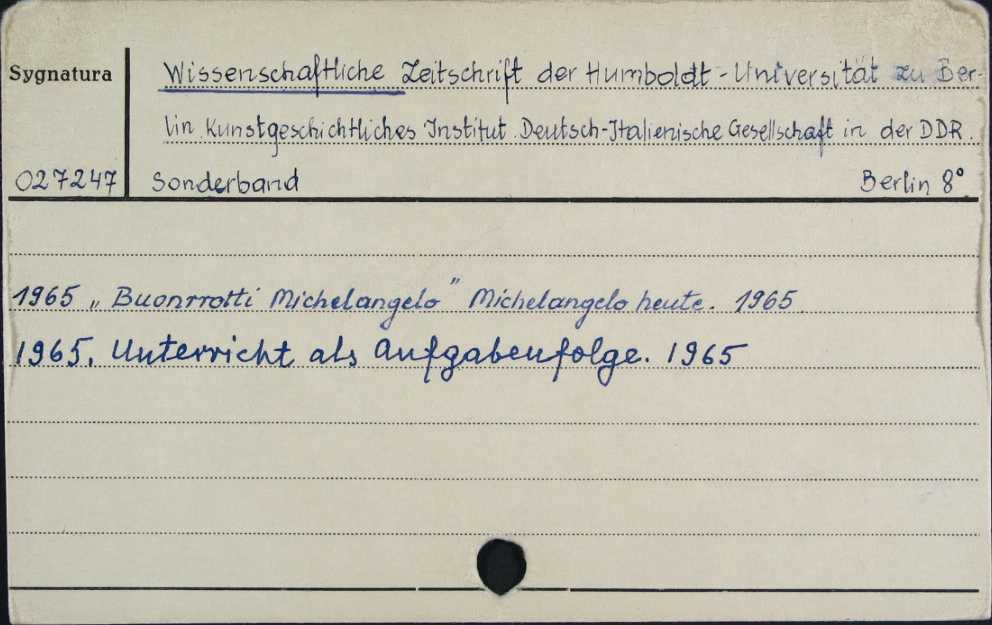 Sygnatura
Wissenschaftliche Zeitschrift der Humboldt-Universität zu Ber-
lin. Kunstgeschichtliches Institut. Deutsch-Italienische Gesellschaft in der DDR.
027247 Sonderband Berlin 8°
1965 „Buonrrotti Michelangelo" Michelangelo heute. 1965
1965. Unterricht als Aufgabenfolge. 1965